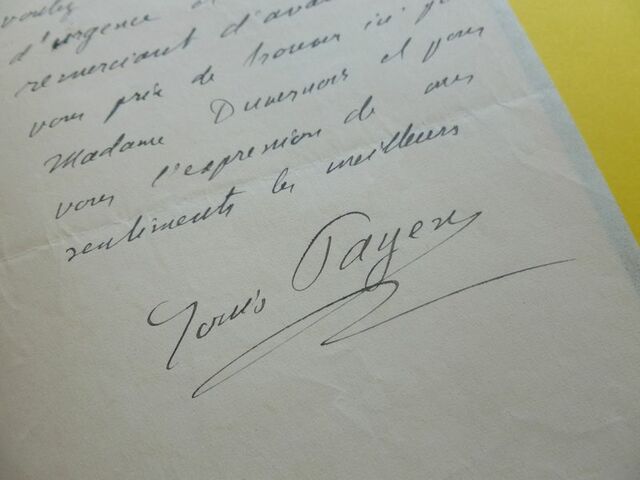 voulez
d'urgence
remerciant d'avan
vous prie de trouver ici p
Madame Duvernois et pour
vous l'expression de mes
sentiments les meilleurs
Louis Payen